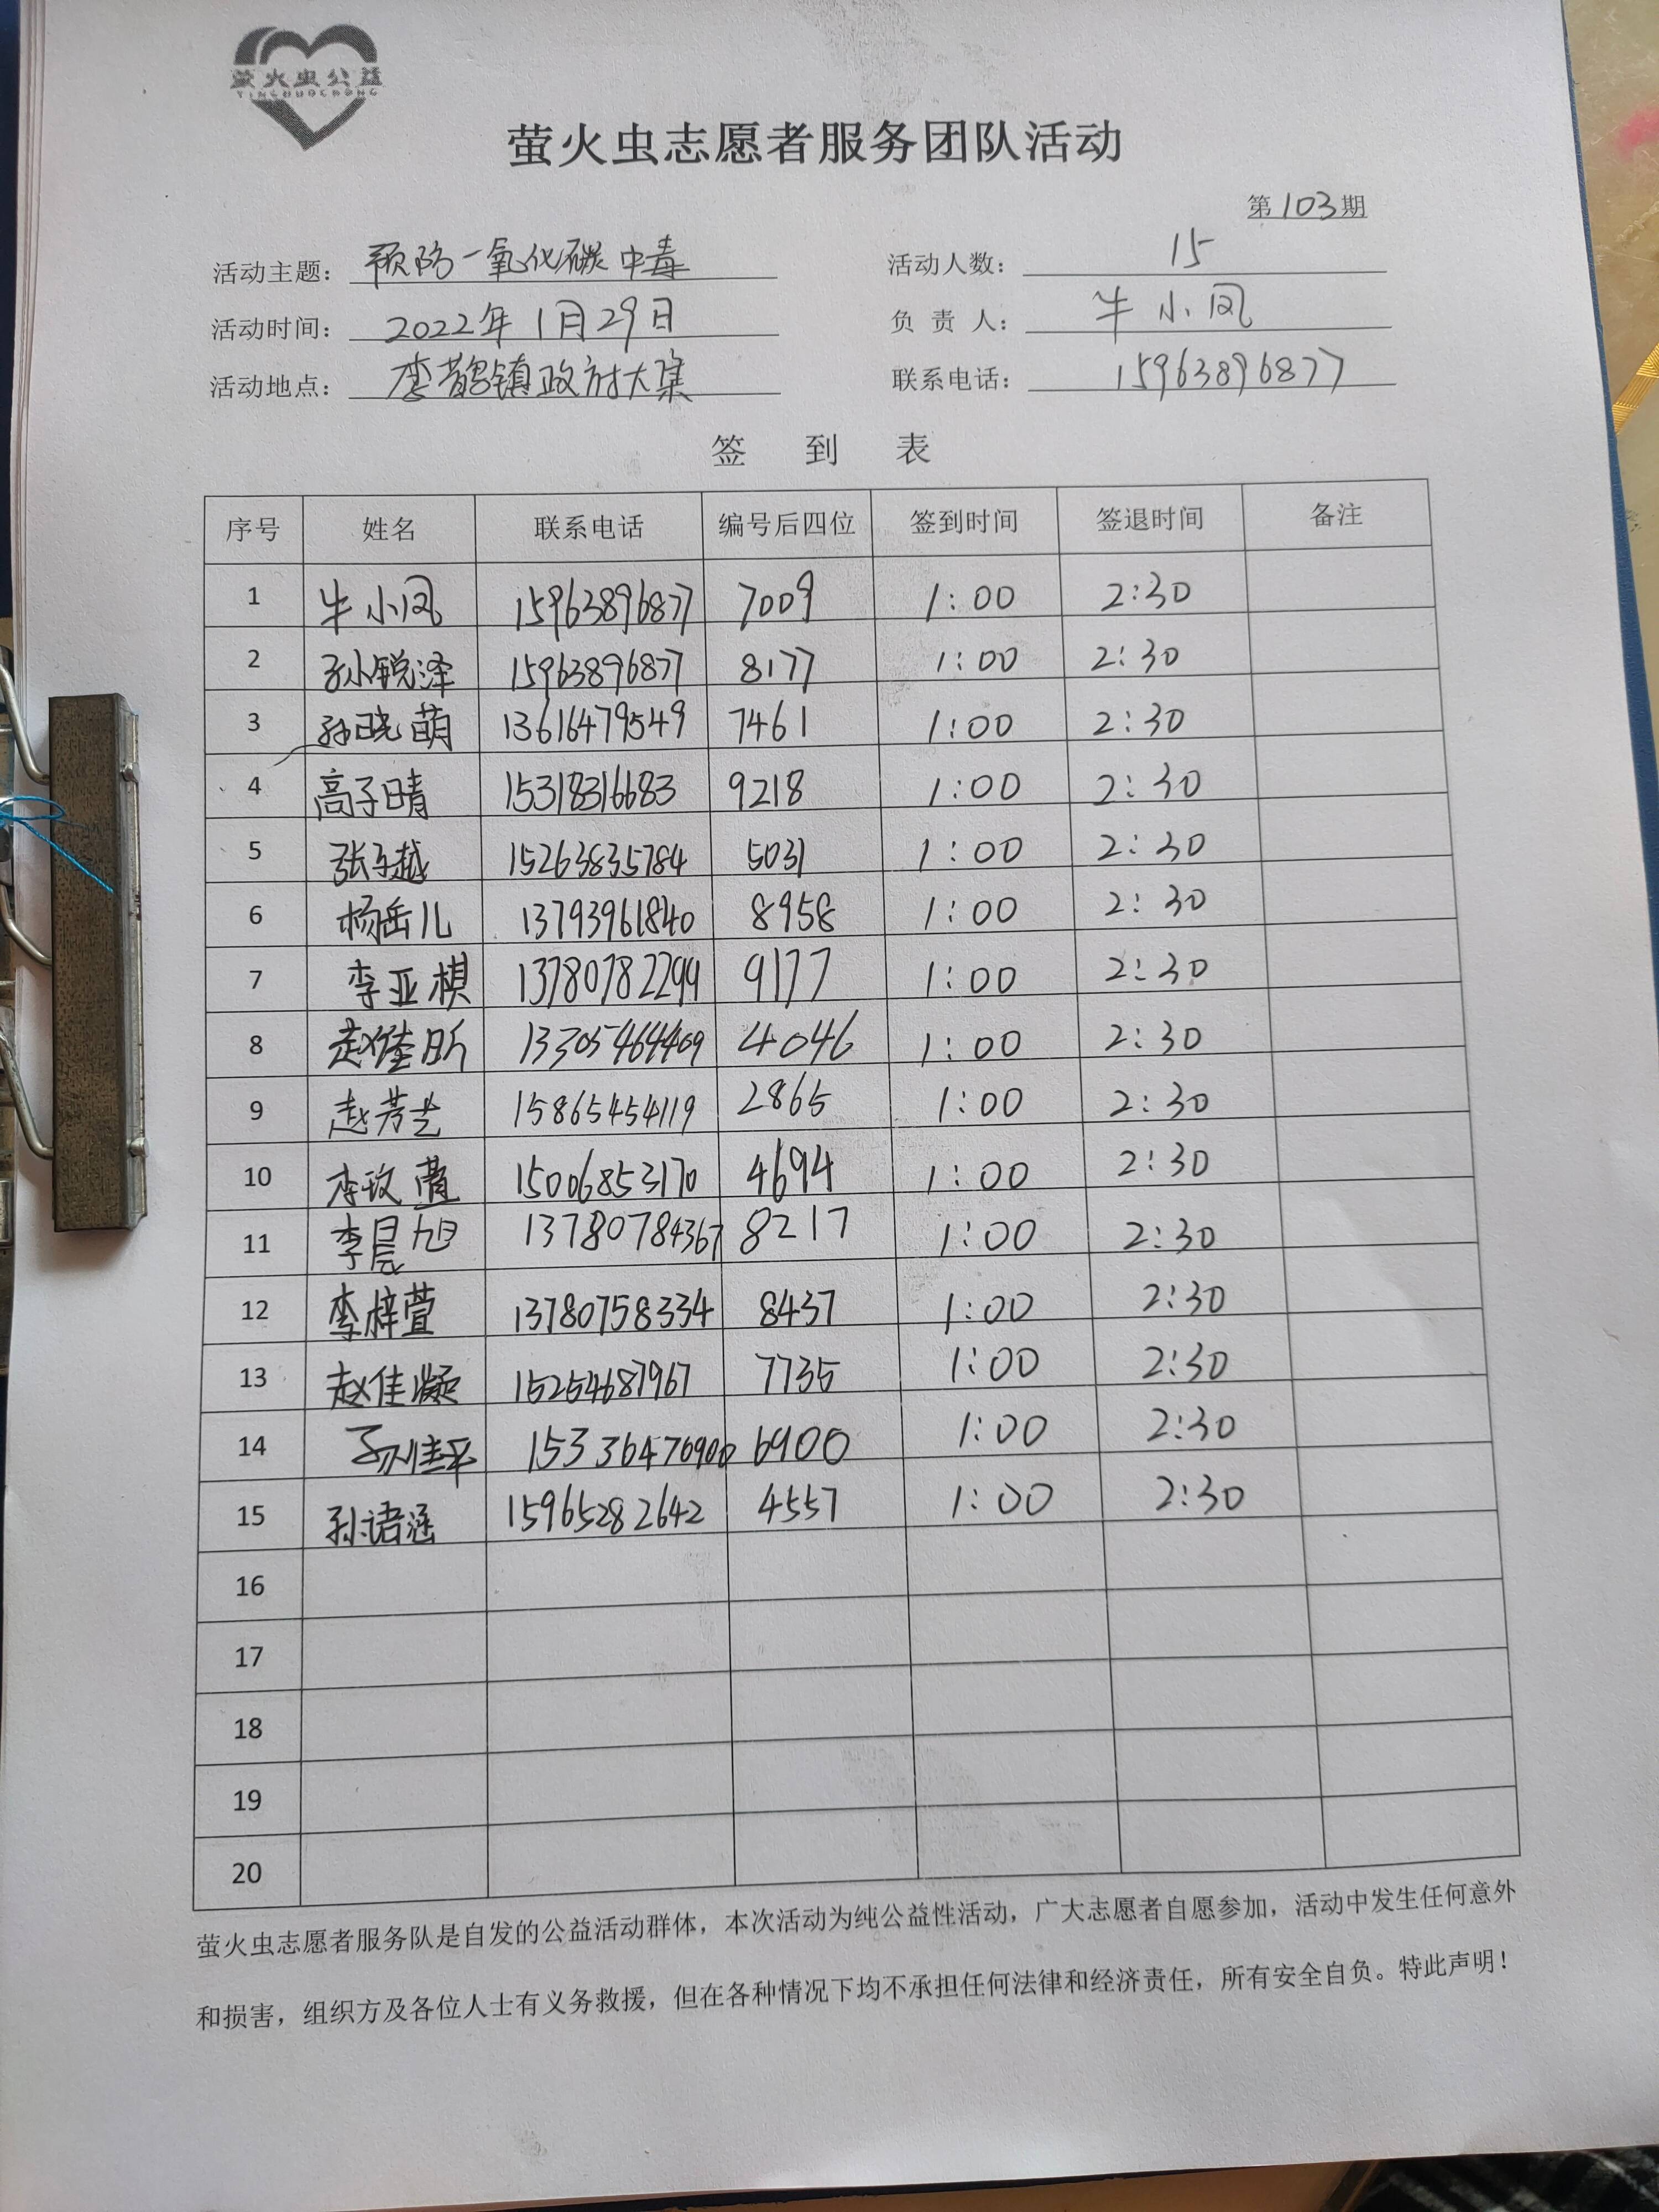 萤火虫公益
YINGHUOCHONG
萤火虫志愿者服务团队活动
第103期
活动主题：预防一氧化碳中毒 活动人数：15
活动时间：2022年1月29日 负责人：牛小凤
活动地点：李鹊镇政府大集 联系电话：15963896877
签到表
序号 姓名 联系电话 编号后四位 签到时间 签退时间 备注
1 牛小凤 15963896877 7009 1:00 2:30
2 孙锐泽 15963896877 8177 1:00 2:30
3 孙晓萌 13616479549 7461 1:00 2:30
4 高子晴 15318316683 9218 1:00 2:30
5 张子越 15263835784 5031 1:00 2:30
6 杨岳儿 13793961840 8958 1:00 2:30
7 李亚棋 13780782299 9177 1:00 2:30
8 赵佳昕 13305464469 4046 1:00 2:30
9 赵芳艺 15865454119 2865 1:00 2:30
10 李玫萱 15006853170 4694 1:00 2:30
11 李晨旭 13780784367 8217 1:00 2:30
12 李梓萱 13780758334 8437 1:00 2:30
13 赵佳凝 15254687967 7735 1:00 2:30
14 孙佳平 15336476900 6900 1:00 2:30
15 孙诺涵 15965282642 4557 1:00 2:30
16
17
18
19
20
萤火虫志愿者服务队是自发的公益活动群体，本次活动为纯公益性活动，广大志愿者自愿参加，活动中发生任何意外
和损害，组织方及各位人士有义务救援，但在各种情况下均不承担任何法律和经济责任，所有安全自负。特此声明！